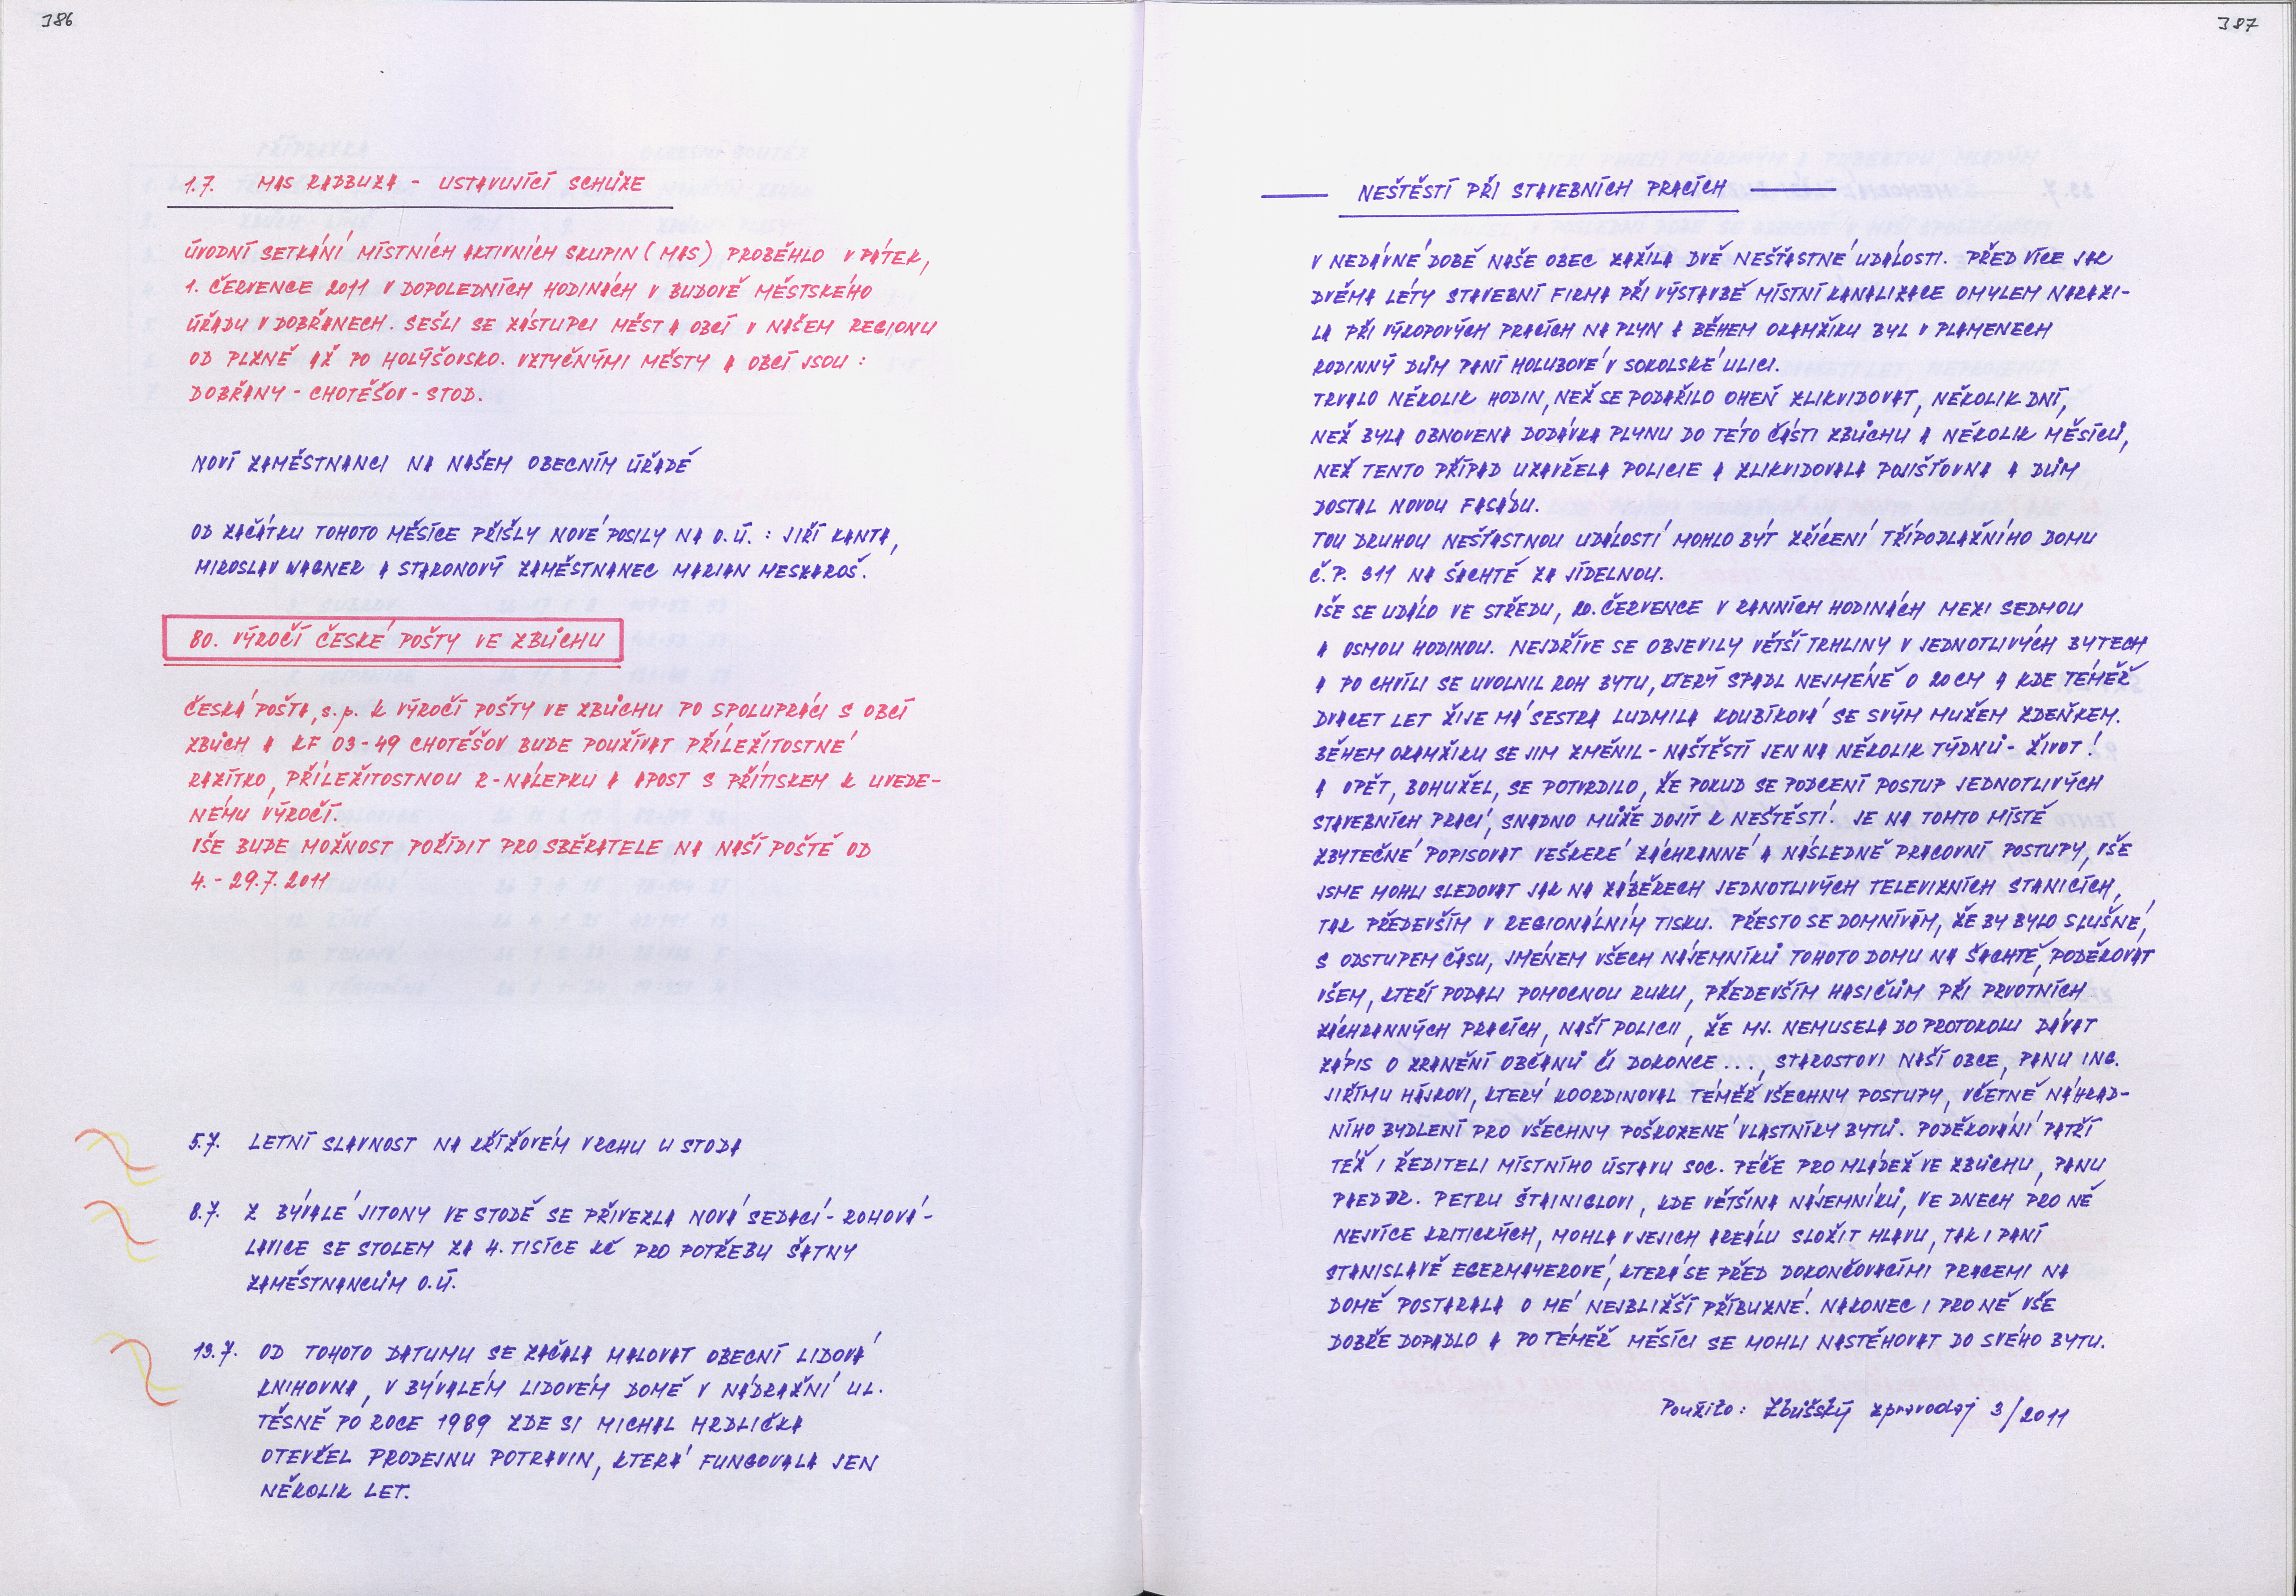 386
1.7. MAS RADBUZA - USTAVUJÍCÍ SCHŮZE
ÚVODNÍ SETKÁNÍ MÍSTNÍCH AKTIVNÍCH SKUPIN (MAS) PROBĚHLO V PÁTEK,
1. ČERVENCE 2011 V DOPOLEDNÍCH HODINÁCH V BUDOVĚ MĚSTSKÉHO
ÚŘADU V DOBŘANECH. SEŠLI SE ZÁSTUPCI MĚST A OBCÍ V NAŠEM REGIONU
OD PLZNĚ AŽ PO HOLÝŠOVSKO. VZTYČNÝMI MĚSTY A OBCÍ JSOU :
DOBŘANY - CHOTĚŠOV - STOD.
NOVÍ ZAMĚSTNANCI NA NAŠEM OBECNÍM ÚŘADĚ
OD ZAČÁTKU TOHOTO MĚSÍCE PŘIŠLY NOVÉ POSILY NA O.Ú. : JIŘÍ KANTA,
MIROSLAV WAGNER A STARONOVÝ ZAMĚSTNANEC MARIAN MESZAROŠ.
80. VÝROČÍ ČESKÉ POŠTY VE ZBŮCHU
ČESKÁ POŠTA, s.p. K VÝROČÍ POŠTY VE ZBŮCHU PO SPOLUPRÁCI S OBCÍ
ZBŮCH A KF 03-49 CHOTĚŠOV BUDE POUŽÍVAT PŘÍLEŽITOSTNÉ
RAZÍTKO, PŘÍLEŽITOSTNOU R-NÁLEPKU A APOST S PŘÍTISKEM K UVEDE-
NÉMU VÝROČÍ.
VŠE BUDE MOŽNOST POŘÍDIT PRO SBĚRATELE NA NAŠÍ POŠTĚ OD
4. - 29.7. 2011
5.7. LETNÍ SLAVNOST NA KŘÍŽOVÉM VRCHU U STODA
8.7. Z BÝVALÉ JITONY VE STODĚ SE PŘIVEZLA NOVÁ SEDACÍ - ROHOVÁ -
LAVICE SE STOLEM ZA 4. TISÍCE KČ PRO POTŘEBU ŠATNY
ZAMĚSTNANCŮM O.Ú.
13.7. OD TOHOTO DATUMU SE ZAČALA MALOVAT OBECNÍ LIDOVÁ
KNIHOVNA, V BÝVALÉM LIDOVÉM DOMĚ V NÁDRAŽNÍ UL.
TĚSNĚ PO ROCE 1989 ZDE SI MICHAL HRDLIČKA
OTEVŘEL PRODEJNU POTRAVIN, KTERÁ FUNGOVALA JEN
NĚKOLIK LET.
387
NEŠTĚSTÍ PŘI STAVEBNÍCH PRACÍCH
V NEDÁVNÉ DOBĚ NAŠE OBEC ZAŽILA DVĚ NEŠŤASTNÉ UDÁLOSTI. PŘED VÍCE JAK
DVĚMA LÉTY STAVEBNÍ FIRMA PŘI VÝSTAVBĚ MÍSTNÍ KANALIZACE OMYLEM NARAZI-
LA PŘI VÝKOPOVÝCH PRACÍCH NA PLYN A BĚHEM OKAMŽIKU BYL V PLAMENECH
RODINNÝ DŮM PANÍ HOLUBOVÉ V SOKOLSKÉ ULICI.
TRVALO NĚKOLIK HODIN, NEŽ SE PODAŘILO OHEŇ ZLIKVIDOVAT, NĚKOLIK DNÍ,
NEŽ BYLA OBNOVENA DODÁVKA PLYNU DO TÉTO ČÁSTI ZBŮCHU A NĚKOLIK MĚSÍCŮ,
NEŽ TENTO PŘÍPAD UZAVŘELA POLICIE A ZLIKVIDOVALA POJIŠŤOVNA A DŮM
DOSTAL NOVOU FASÁDU.
TOU DRUHOU NEŠŤASTNOU UDÁLOSTÍ MOHLO BÝT ZŘÍCENÍ TŘÍPODLAŽNÍHO DOMU
Č.P. 311 NA ŠACHTĚ ZA JÍDELNOU.
VŠE SE UDÁLO VE STŘEDU, 20. ČERVENCE V RANNÍCH HODINÁCH MEZI SEDMOU
A OSMOU HODINOU. NEJDŘÍVE SE OBJEVILY VĚTŠÍ TRHLINY V JEDNOTLIVÝCH BYTECH
A PO CHVÍLI SE UVOLNIL ROH BYTU, KTERÝ SPADL NEJMÉNĚ O 20 CM A KDE TÉMĚŘ
DVACET LET ŽIJE MÁ SESTRA LUDMILA KOUBÍKOVÁ SE SVÝM MUŽEM ZDEŇKEM.
BĚHEM OKAMŽIKU SE JIM ZMĚNIL - NAŠTĚSTÍ JEN NA NĚKOLIK TÝDNŮ - ŽIVOT!
A OPĚT, BOHUŽEL, SE POTVRDILO, ŽE POKUD SE PODCENÍ POSTUP JEDNOTLIVÝCH
STAVEBNÍCH PRACÍ, SNADNO MŮŽE DOJÍT K NEŠTĚSTÍ. JE NA TOMTO MÍSTĚ
ZBYTEČNÉ POPISOVAT VEŠKERÉ ZÁCHRANNÉ A NÁSLEDNĚ PRACOVNÍ POSTUPY, VŠE
JSME MOHLI SLEDOVAT JAK NA ZÁBĚRECH JEDNOTLIVÝCH TELEVIZNÍCH STANICÍCH,
TAK PŘEDEVŠÍM V REGIONÁLNÍM TISKU. PŘESTO SE DOMNÍVÁM, ŽE BY BYLO SLUŠNÉ,
S ODSTUPEM ČASU, JMÉNEM VŠECH NÁJEMNÍKŮ TOHOTO DOMU NA ŠACHTĚ, PODĚKOVAT
VŠEM, KTEŘÍ PODALI POMOCNOU RUKU, PŘEDEVŠÍM HASIČŮM PŘI PRVOTNÍCH
ZÁCHRANNÝCH PRACÍCH, NAŠÍ POLICII, ŽE MJ. NEMUSELA DO PROTOKOLU DÁVAT
ZÁPIS O ZRANĚNÍ OBČANŮ ČI DOKONCE ..., STAROSTOVI NAŠÍ OBCE, PANU ING.
JIŘÍMU HÁJKOVI, KTERÝ KOORDINOVAL TÉMĚŘ VŠECHNY POSTUPY, VČETNĚ NÁHRAD-
NÍHO BYDLENÍ PRO VŠECHNY POŠKOZENÉ VLASTNÍKY BYTŮ. PODĚKOVÁNÍ PATŘÍ
TÉŽ I ŘEDITELI MÍSTNÍHO ÚSTAVU SOC. PÉČE PRO MLÁDEŽ VE ZBŮCHU, PANU
PAEDDR. PETRU ŠTAINIGLOVI, KDE VĚTŠINA NÁJEMNÍKŮ, VE DNECH PRO NĚ
NEJVÍCE KRITICKÝCH, MOHLA V JEJICH AREÁLU SLOŽIT HLAVU, TAK I PANÍ
STANISLAVĚ EGERMAYEROVÉ, KTERÁ SE PŘED DOKONČOVACÍMI PRACEMI NA
DOMĚ POSTARALA O MÉ NEJBLIŽŠÍ PŘÍBUZNÉ. NAKONEC I PRO NĚ VŠE
DOBŘE DOPADLO A PO TÉMĚŘ MĚSÍCI SE MOHLI NASTĚHOVAT DO SVÉHO BYTU.
Použito: Zbůšský zpravodaj 3/2011